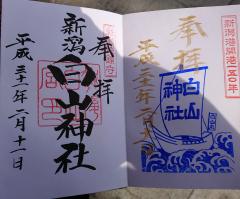 奉拝
新潟
白山神社
平成三十一年二月十一日
新潟港開港一五〇年
奉拝
白山
神社